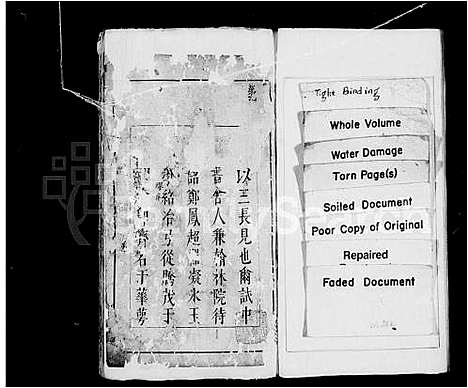 以三長見也爾試中
書舍人兼翰林院待
詔鄭鳳超
凝氷玉
紹冶弓從騰茂于
名于華夢
Tight Binding
Whole Volume
Water Damage
Torn Page(s)
Soiled Document
Poor Copy of Original
Repaired
Faded Document